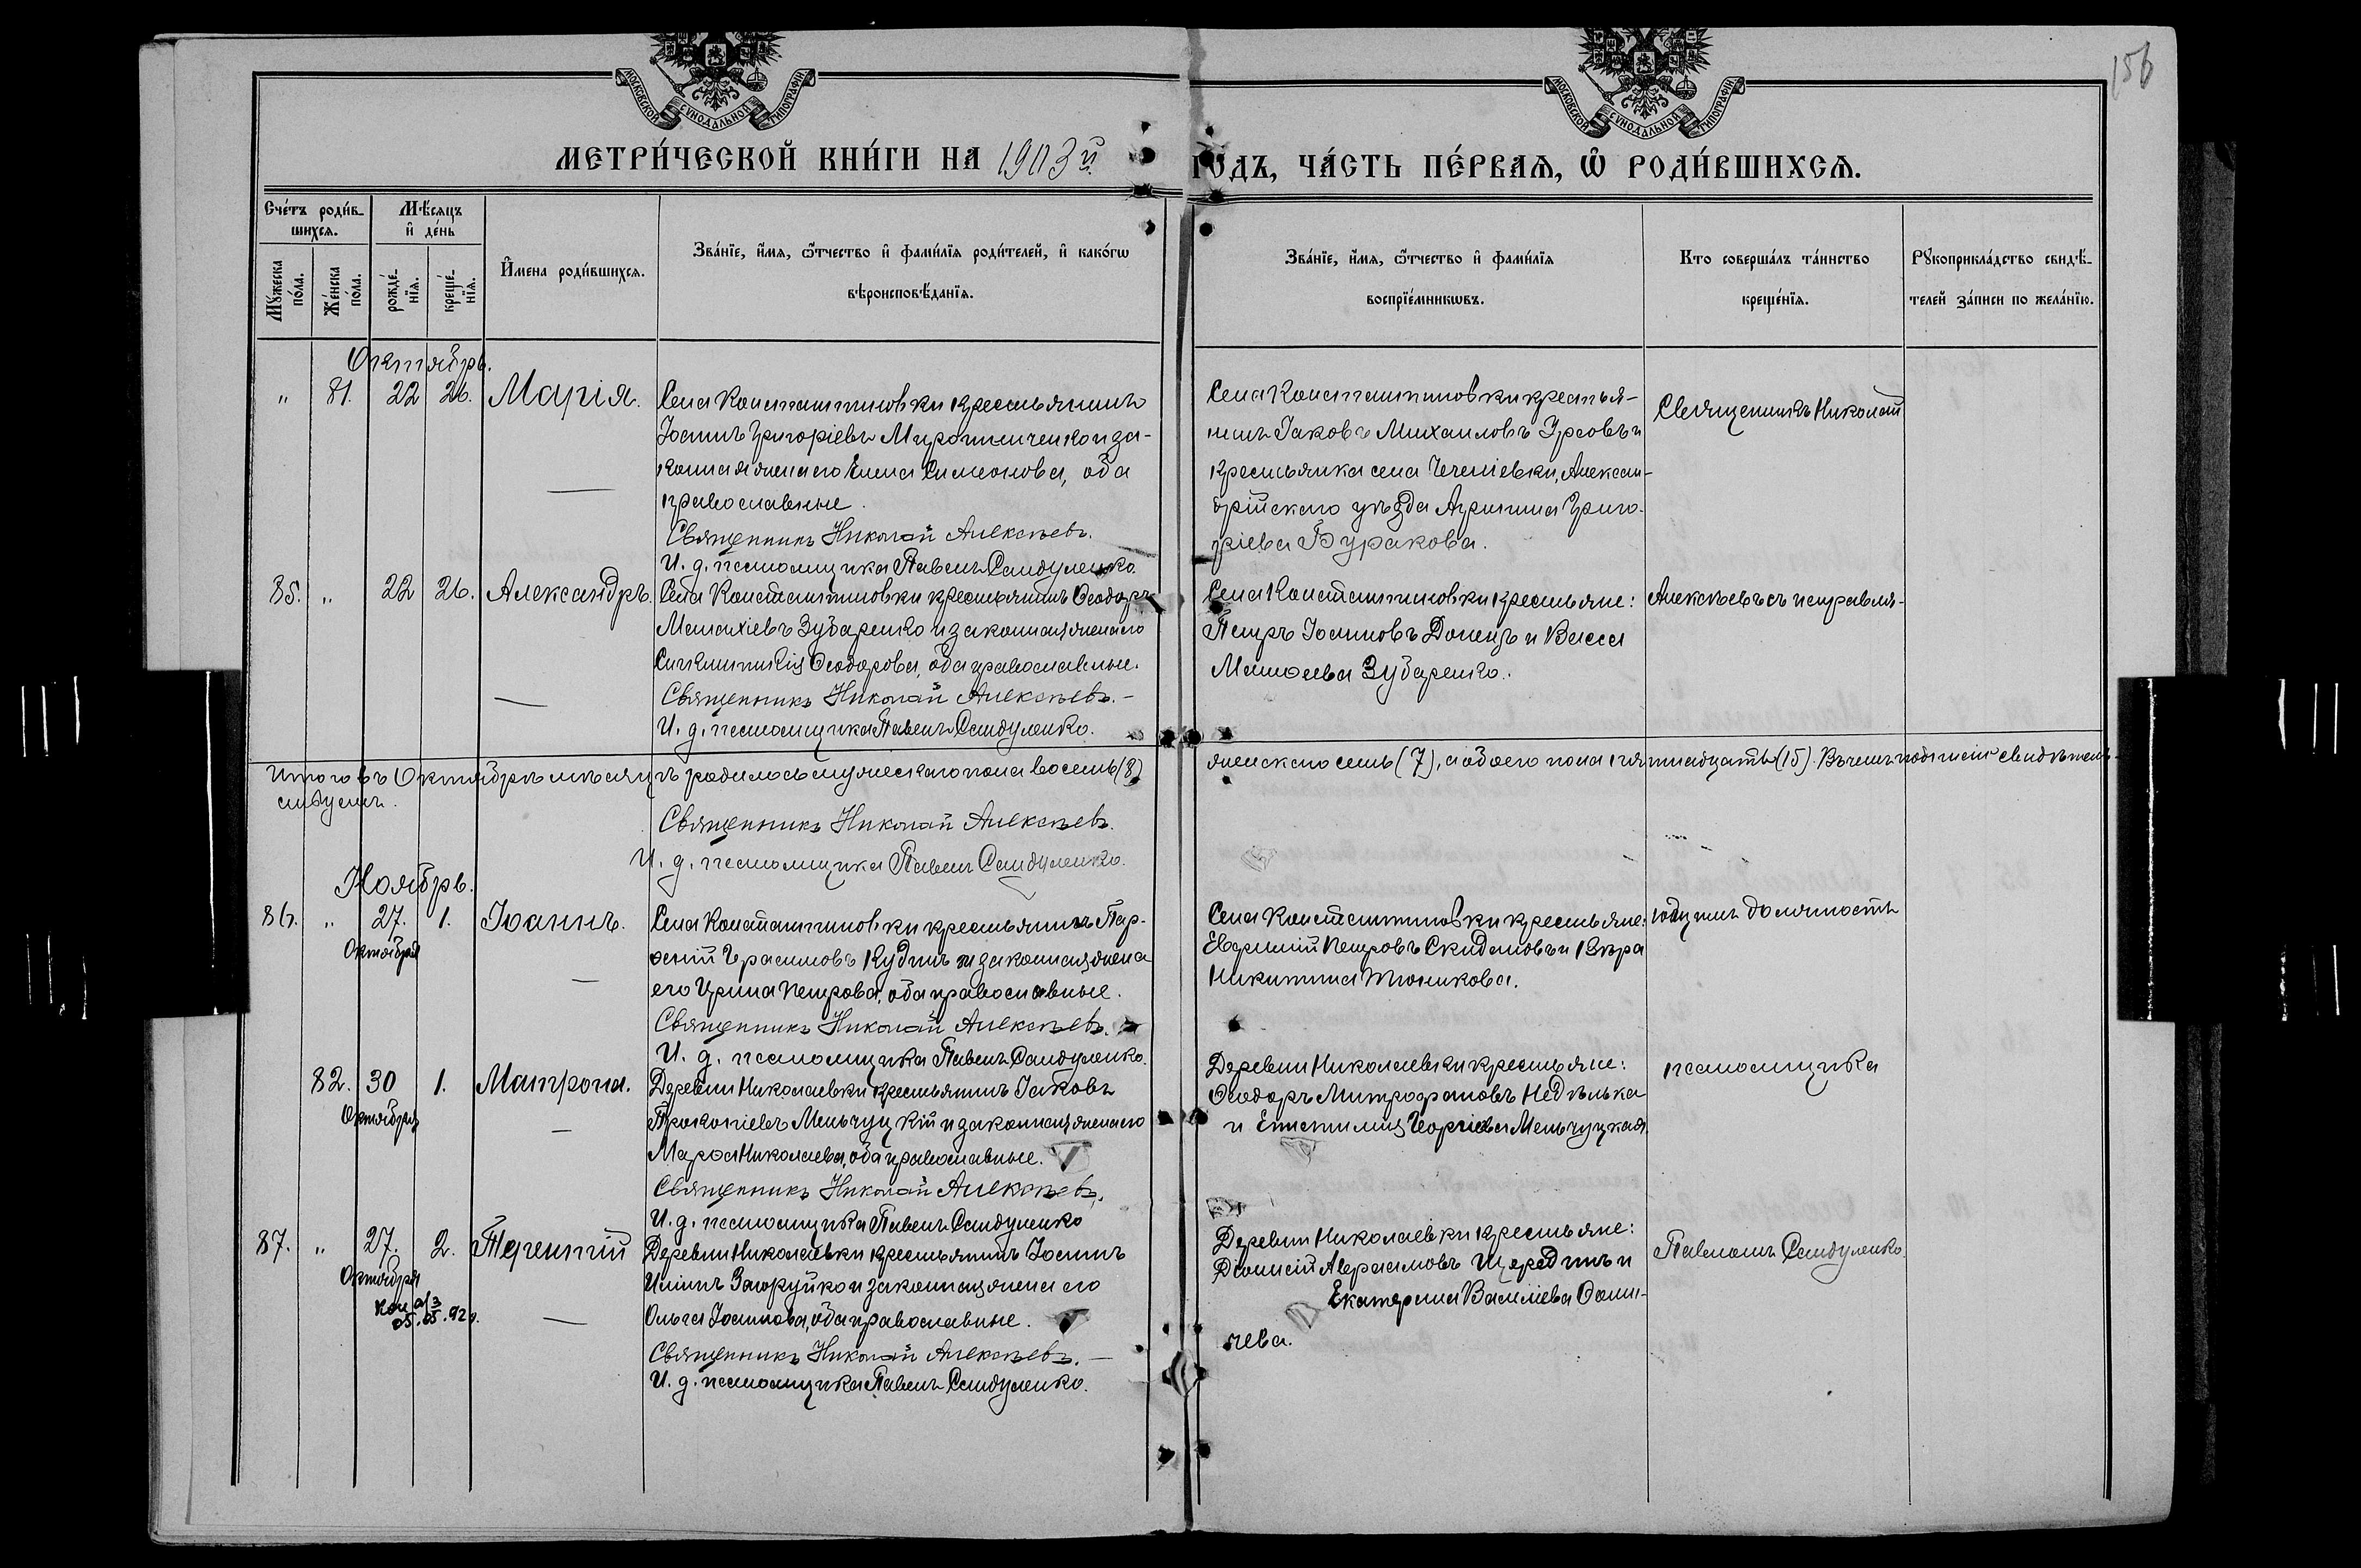 156
МОСКОВСКОЙ СѴНОДАЛЬНОЙ ТИПОГРАФІИ
МОСКОВСКОЙ СѴНОДАЛЬНОЙ ТИПОГРАФІИ
МЕТРИ́ЧЕСКОЙ КНИ́ГИ НА 1903й
ГОДЪ, ЧА́СТЬ ПЕ́РВАѦ, Ѡ҆ РОДИ́ВШИХСѦ.
Сче́тъ роди́в-
шихсѧ.
Мѣ́сѧцъ
и҆ де́нь
Мꙋ́жеска
по́ла.
Же́нска
по́ла.
рожде́-
нїѧ.
креще́-
нїѧ.
И҆мена роди́вшихсѧ.
Зва́нїе, и҆́мѧ, ѻ҆́тчество и҆ фами́лїѧ роди́телей, и҆ како́гѡ
вѣроисповѣ́данїѧ.
Зва́нїе, и҆́мѧ, ѻ҆́тчество и҆ фами́лїѧ
воспрїе́мникѡвъ.
Кто соверша́лъ та́инство
креще́нїѧ.
Рꙋкоприкла́дство свидѣ́-
телей за́писи по жела́нїю.
Октябрь.
" 81. 22 26. Марія.
Села Константиновки крестьянинъ
Іоаннъ Григоріевъ Мирошниченко и за-
конная жена его Елена Симеонова, оба
православные.
Священникъ Николай Алексѣевъ.
И. д. псаломщика Павелъ Сандуленко.
Села Константиновки крестья-
нинъ Іаковъ Михаиловъ Урсовъ и
крестьянка села Чечеліевки, Алексан-
дрійскаго уѣзда Агрипина Григо-
ріева Буракова.
Священникъ Николай
85. " 22 26. Александръ.
Села Константиновки крестьянинъ Ѳеодоръ
Малахіевъ Зубаренко и законная жена его
Синклитикія Ѳеодорова, оба православные.
Священникъ Николай Алексѣевъ.-
И. д. псаломщика Павелъ Сандуленко.
Села Константиновки крестьяне:
Петръ Іоанновъ Донецъ и Васса
Зубаренко.
Алексѣевъ съ исправля-
Итого въ Октябрѣ мѣсяцѣ родилось мужескаго пола восемь (8)
женскаго семь (7), а обоего пола пятнадцать (15). Въ чемъ подписью свидѣтель-
ствуемъ.
Священникъ Николай Алексѣевъ.
И. д. псаломщика Павелъ Сандуленко.
Ноябрь.
86. " 27. 1. Іоаннъ.
Октября
Села Константиновки крестьянинъ Пар-
ѳеній Герасимовъ Кудинъ и законная жена
его Ирина Петрова, оба православные.
Священникъ Николай Алексѣевъ.
И. д. псаломщика Павелъ Сандуленко.
Села Константиновки крестьяне:
Петровъ Скидановъ и Вѣра
Никитина Тюникова.
ющимъ должность
82. 30 1. Матрона.
Октября
Деревни Николаевки крестьянинъ Іаковъ
Прокопіевъ Мельчуцкій и законная жена его
Марѳа Николаева, оба православные.
Священникъ Николай Алексѣевъ.
И. д. псаломщика Павелъ Сандуленко
Деревни Николаевки крестьяне:
Ѳеодоръ Митрофановъ Недѣлька
и Епистимія Георгіева Мельчуцкая.
псаломщика
87. " 27. 2. Терентій
Октября
Деревни Николаевки крестьянинъ Іоаннъ
Загоруйко и законная жена его
Ольга Іоаннова, оба православные.
Священникъ Николай Алексѣевъ.-
И. д. псаломщика Павелъ Сандуленко.
Деревни Николаевки крестьяне:
Діонисій Аврамовъ Щерединъ и
Екатерина Василіева Ѳоми-
чева.
Павломъ Сандуленко.